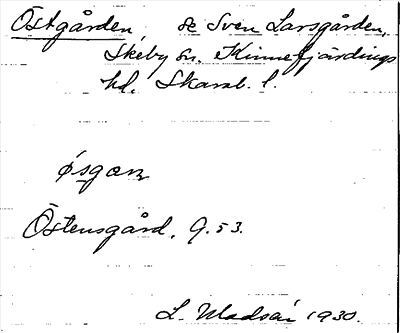 Östgården, se Sven Larsgården,
Skeby sn. Kinnefjärdings
hd. Skarab. l.
ǿsgaɳ
Östensgård. 9.53.
L. Wadsár 1930.